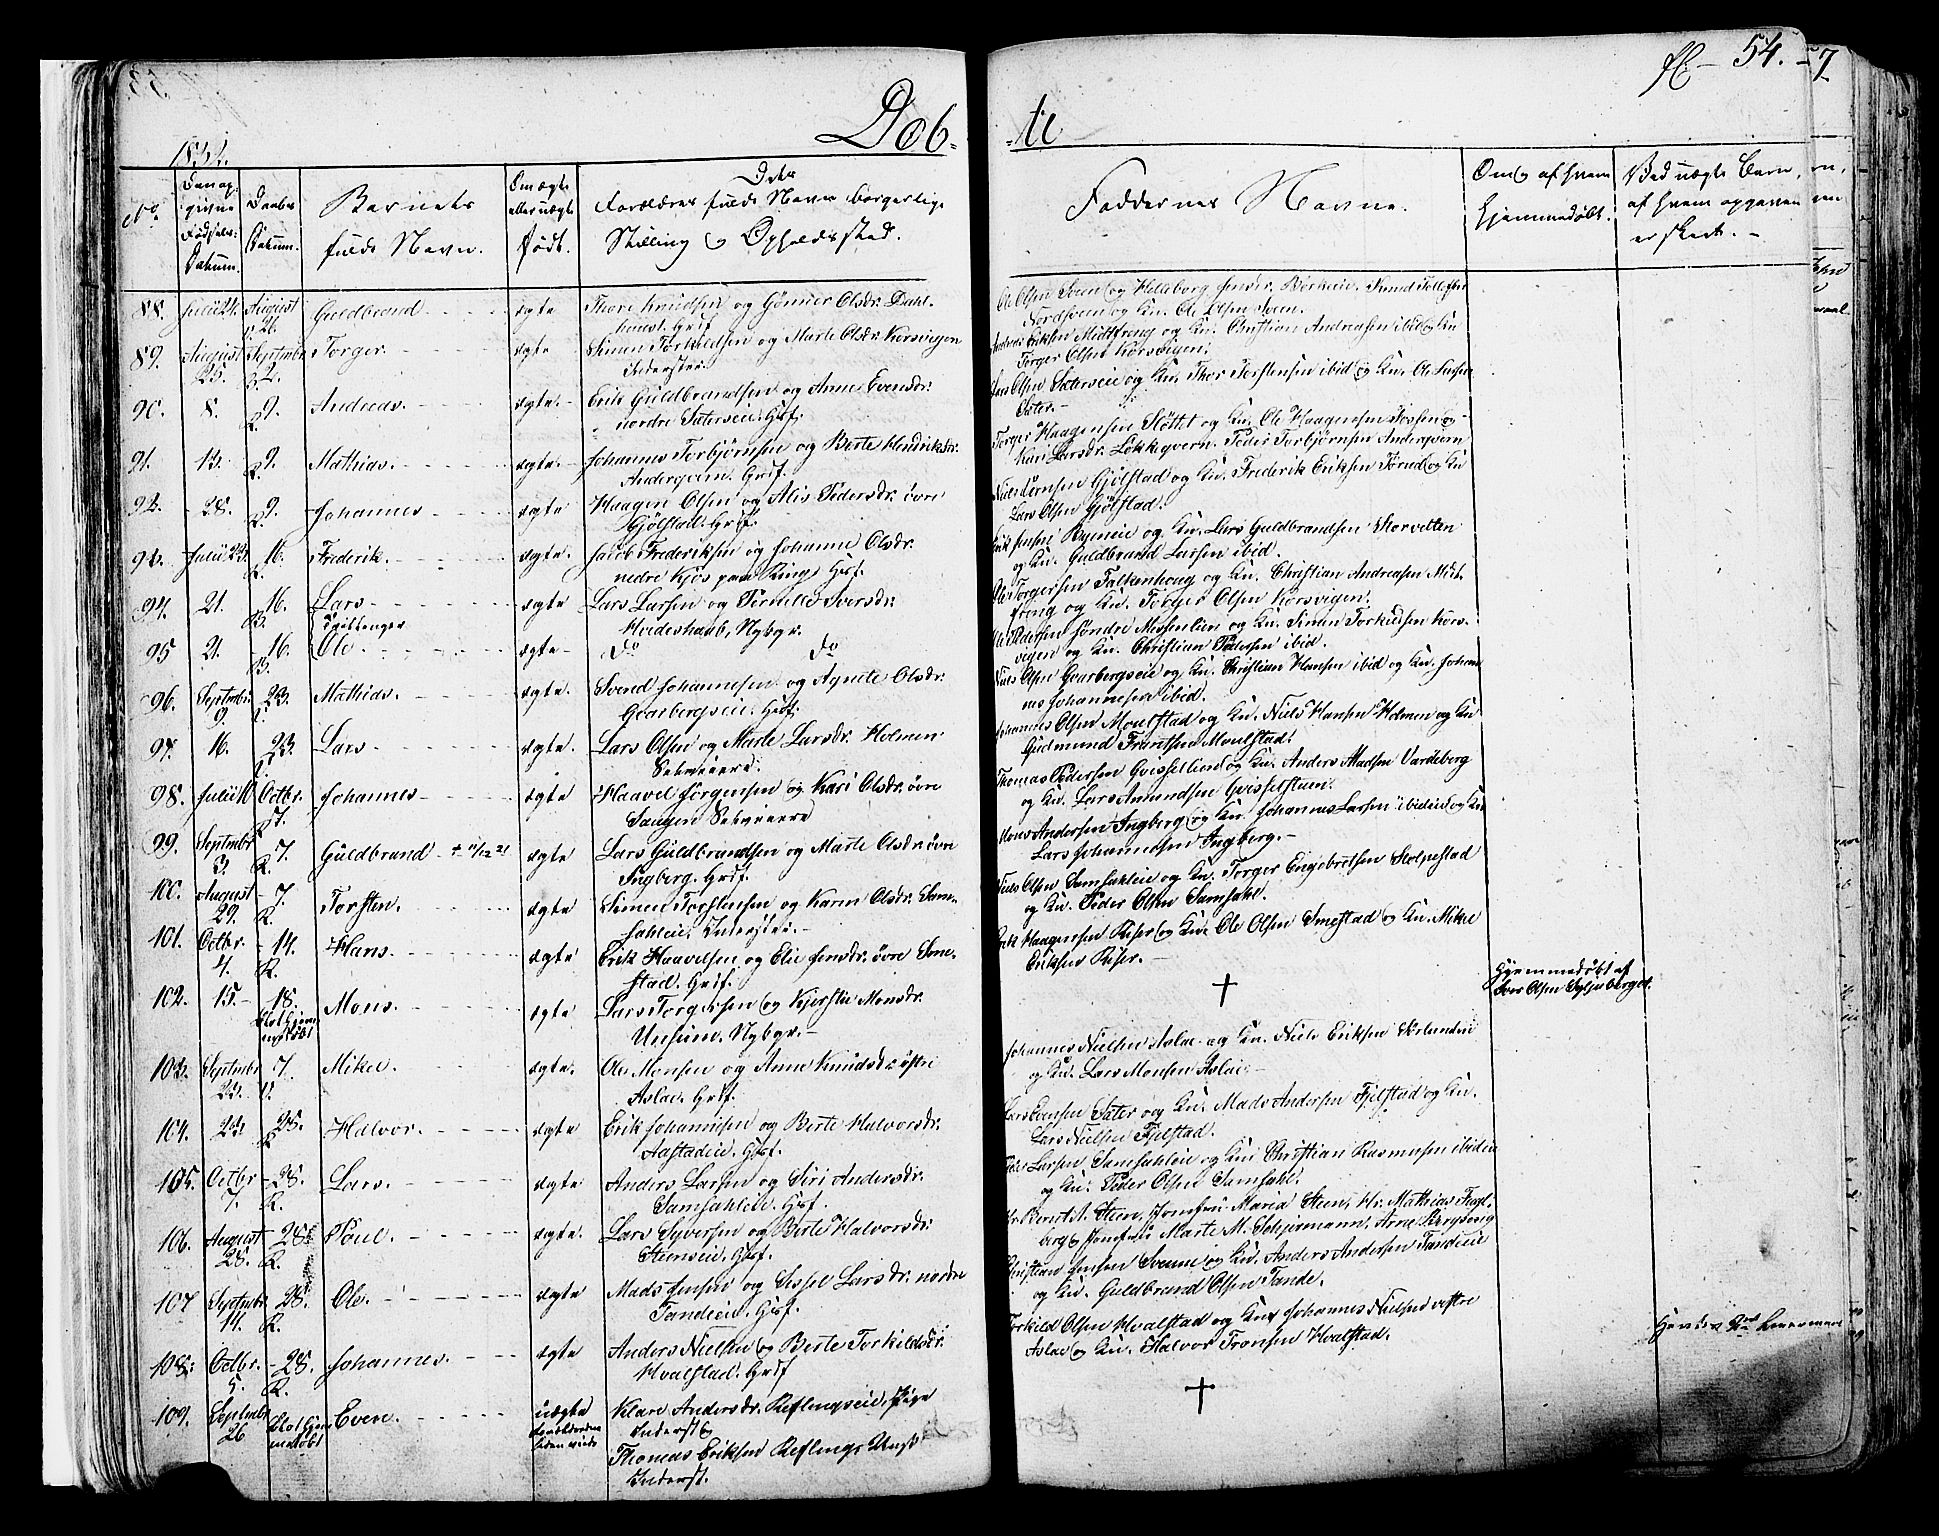 fl - 54.
7
Døb-
-te
18
No
Den angivne Fødsels Datum.
Daabs Datum.
Barnets fulde Navn.
Om ægte eller uægte Født.
Forældrenes fulde Navn borgerlige Stilling og Opholdssted.
Faddernes Navne.
Om og af hvem hjemmedøbt.
Ved uægte Børn, af hvem opgaven er skeet. -
88. Julii 24. August 26. Guldbrand ægte Thore Knudsen og Gunner Olsdr. Dahl-
Ole Olsen Sveen og Helleborg Jensdr. Børkeie. Knud Tollefsen
Nordsveen og Km. Ole Olsen Sveen.
89. August 25. Septmbr 2. Torger. ægte Simen Torkildsen og Marte Olsdr. Korsvigen
Inderster.
Eriksen Midtfrang og Km. Christian Andreasen ibid og Km
Torger Olsen Korsvigen.
90. 8. 9. Andreas. ægte. Erik Guldbrandsen og Anne Evensdr.
nordre Sæterseie. Huf.
Lars Olsen Sæterseie og Km. Thor Torstensen ibid og Km. Ole Larsen
Sæter. -
91. 13. 9. Mathias. ægte. Johannes Torbjørnsen og Berte Hendriksdr.
Andergvern. Grf.
Torger Haagensen Støttet og Km. Ole Haagensen Fossen og
Kari Larsdr. Løkkeqvern. Peder Torbjørnsen Andergvern
92. 28. 9. Johannes ægte Haagen Olsen og Alis Pedersdr. øvre
Gjølstad. Grf.
Gjølstad og Km. Frederik Eriksen Forud og Km
Lars Olsen Gjølstad.
93. Julii 23. 16. Frederik. ægte. Jacob Frederiksen og Johanne Olsdr.
nedre Kjos paa Rings Huf.
Erik Jensen Rymeie og Km. Lars Guldbrandsen Skorvelten
og Km. Guldbrand Larsen ibid.
94. 21. 16. Lars Tvillinger ægte Lars Larsen og Pernille Iversdr.
Hvideskaab, Nybgr.
Ole Torgersen Falkenhoug og Km. Christian Andreasen Midt-
frang og Km. Torger Olsen Korsvigen.
95 21. 16. Ole. ægte Do Do
Pedersen søndre Messenlien og Km. Simen Torkildsen Kors-
vigen og Km. Christian Pedersen ibid.
96. Septmbr 9. 23. Mathias. ægte. Svend Johannesen og Agnete Olsdr.
Gvarbergseie. Huf.
Niels Olsen Gvarbergseie og Km. Christian Hansen ibid og Km. Johan-
nes Johannesen ibid.
97. 16. 23 Lars ægte. Lars Olsen og Marte Larsdr. Holmen
Selveiere.
Johannes Olsen Moulstad og Km. Niels Hansen Holmen og Km
Gudmund Frantsen Moulstad.
98. Julii Octbr. 7. Johannes ægte Haavel Jørgensen og Kari Olsdr. øvre
Saugen Selveiere
Thomas Pedersen Gvisselliend og Km. Anders Madsen Vardeberg
og Km. Lars Amundsen Gvisselstuen.
99. Septmbr 3. 7. R. Guldbrand + 11/12 21 ægte Lars Guldbrandsen og Marte Olsdr. øvre
Ingberg. Grf.
Mons Andersen Ingberg og Km. Johannes Larsen ibideie og Km
Lars Johannesen Ingberg. -
100. August 29. 7. R. Torsten. ægte Simen Torstensen og Karen Olsdr. Sam-
sahleie. Inderster. -
Niels Olsen Samsahleie og Km. Torger Engebretsen Stolpestad
og Km. Peder Olsen Samsahl.
101. Octbr. 4. 14. R. Hans. ægte Erik Haavelsen og Elie Jensdr. øvre Sme-
stad. Grf.
Erik Haagensen Riser og Km. Ole Olsen Smestad og Km. Mikel
Eriksen Riser. -
102. 15. 18. blot hjemmedøbt Mons. ægte Lars Torgersen og Kjerstie Monsdr.
Nybgr. -
+
Hjemmedøbt af
Iver Olsen
103. Septmbr 23. 7. Mikel. ægte. Ole Monsen og Anne Knudsdr. østre
Aslac. Grf.
Johannes Nielsen Aslac og Km. Niels Eriksen
og Km. Lars Monsen Aslac. -
104. 23. 25. Halvor. ægte Erik Johannesen og Berte Halvorsdr.
Aastadeie. Huf.
Lars Evensen Sæter og Km. Mads Andersen Fjelstad og Km.
Lars Nielsen Fjelstad.
105. Octbr 7. 28. R. Lars. ægte Anders Larsen og Siri Andersdr.
Samsahleie. Huf.
Larsen Samsahleie og Km Christian Rasmusen ibideie
og Km. Peder Olsen Samsahl.
106. August 28. 28. R. Poul. ægte. Lars Syversen og Berte Halvorsdr.
Steenseie. Huf.
Hr. Bernt A. Steen, Jomfrue Maria Steen, Hr. Mathias Fugl-
berg og Jomfrue Marte M. Schjermann, Arne
107 Septmbr 14. 28. R. Ole. ægte Mads Jensen og Sissel Larsdr. nordre
Tandeeie. Huf.
Christian Jensen Sveene og Km. Anders Andersen Tandeeie
og Km. Guldbrand Olsen Tande.
108. Octbr. 5. 28. R. Johannes. ægte Anders Nielsen og Berte Torkildsdr.
Hvalstad. Grf
Torkild Olsen Hvalstad og Km. Johannes Nielsen vestre
Aslac og Km. Halvor Tronsen Hvalstad.
109. Septmbr 26 blot hjemmedøbt Even. uægte Klare Andersdr. Reflingseie, Pige
Inderst og
Thomas Eriksen Reflings Ungk.
Inderst.
+